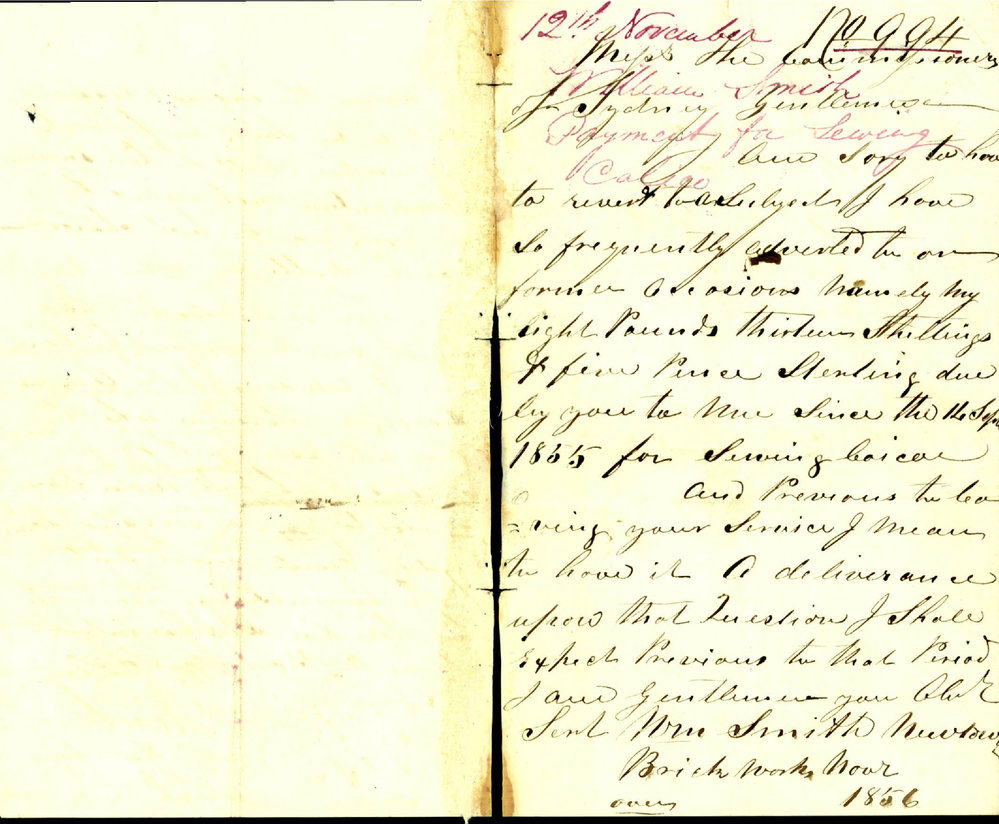 12th November No 994
Messrs The Commissioners
William Smith
of Sydney Gentlemen
Payment for Sewing
am sory to have
Calico
to revert to a Subject I have
so frequently adverted to on
former Occasions Namely My
Eight Pounds thirteen Shillings
& five Pence Sterling due
by you to Me Since the 14 Sept
1855 for Sewing Caicoe
And Previous to lea
=ving your Service I mean
to have it A deliverance
upon that Question I Shall
Expect Previous to that Period
I am Gentlemen you Obt
Sert Wm Smith Newtown
Brick Work Novr
over 1856